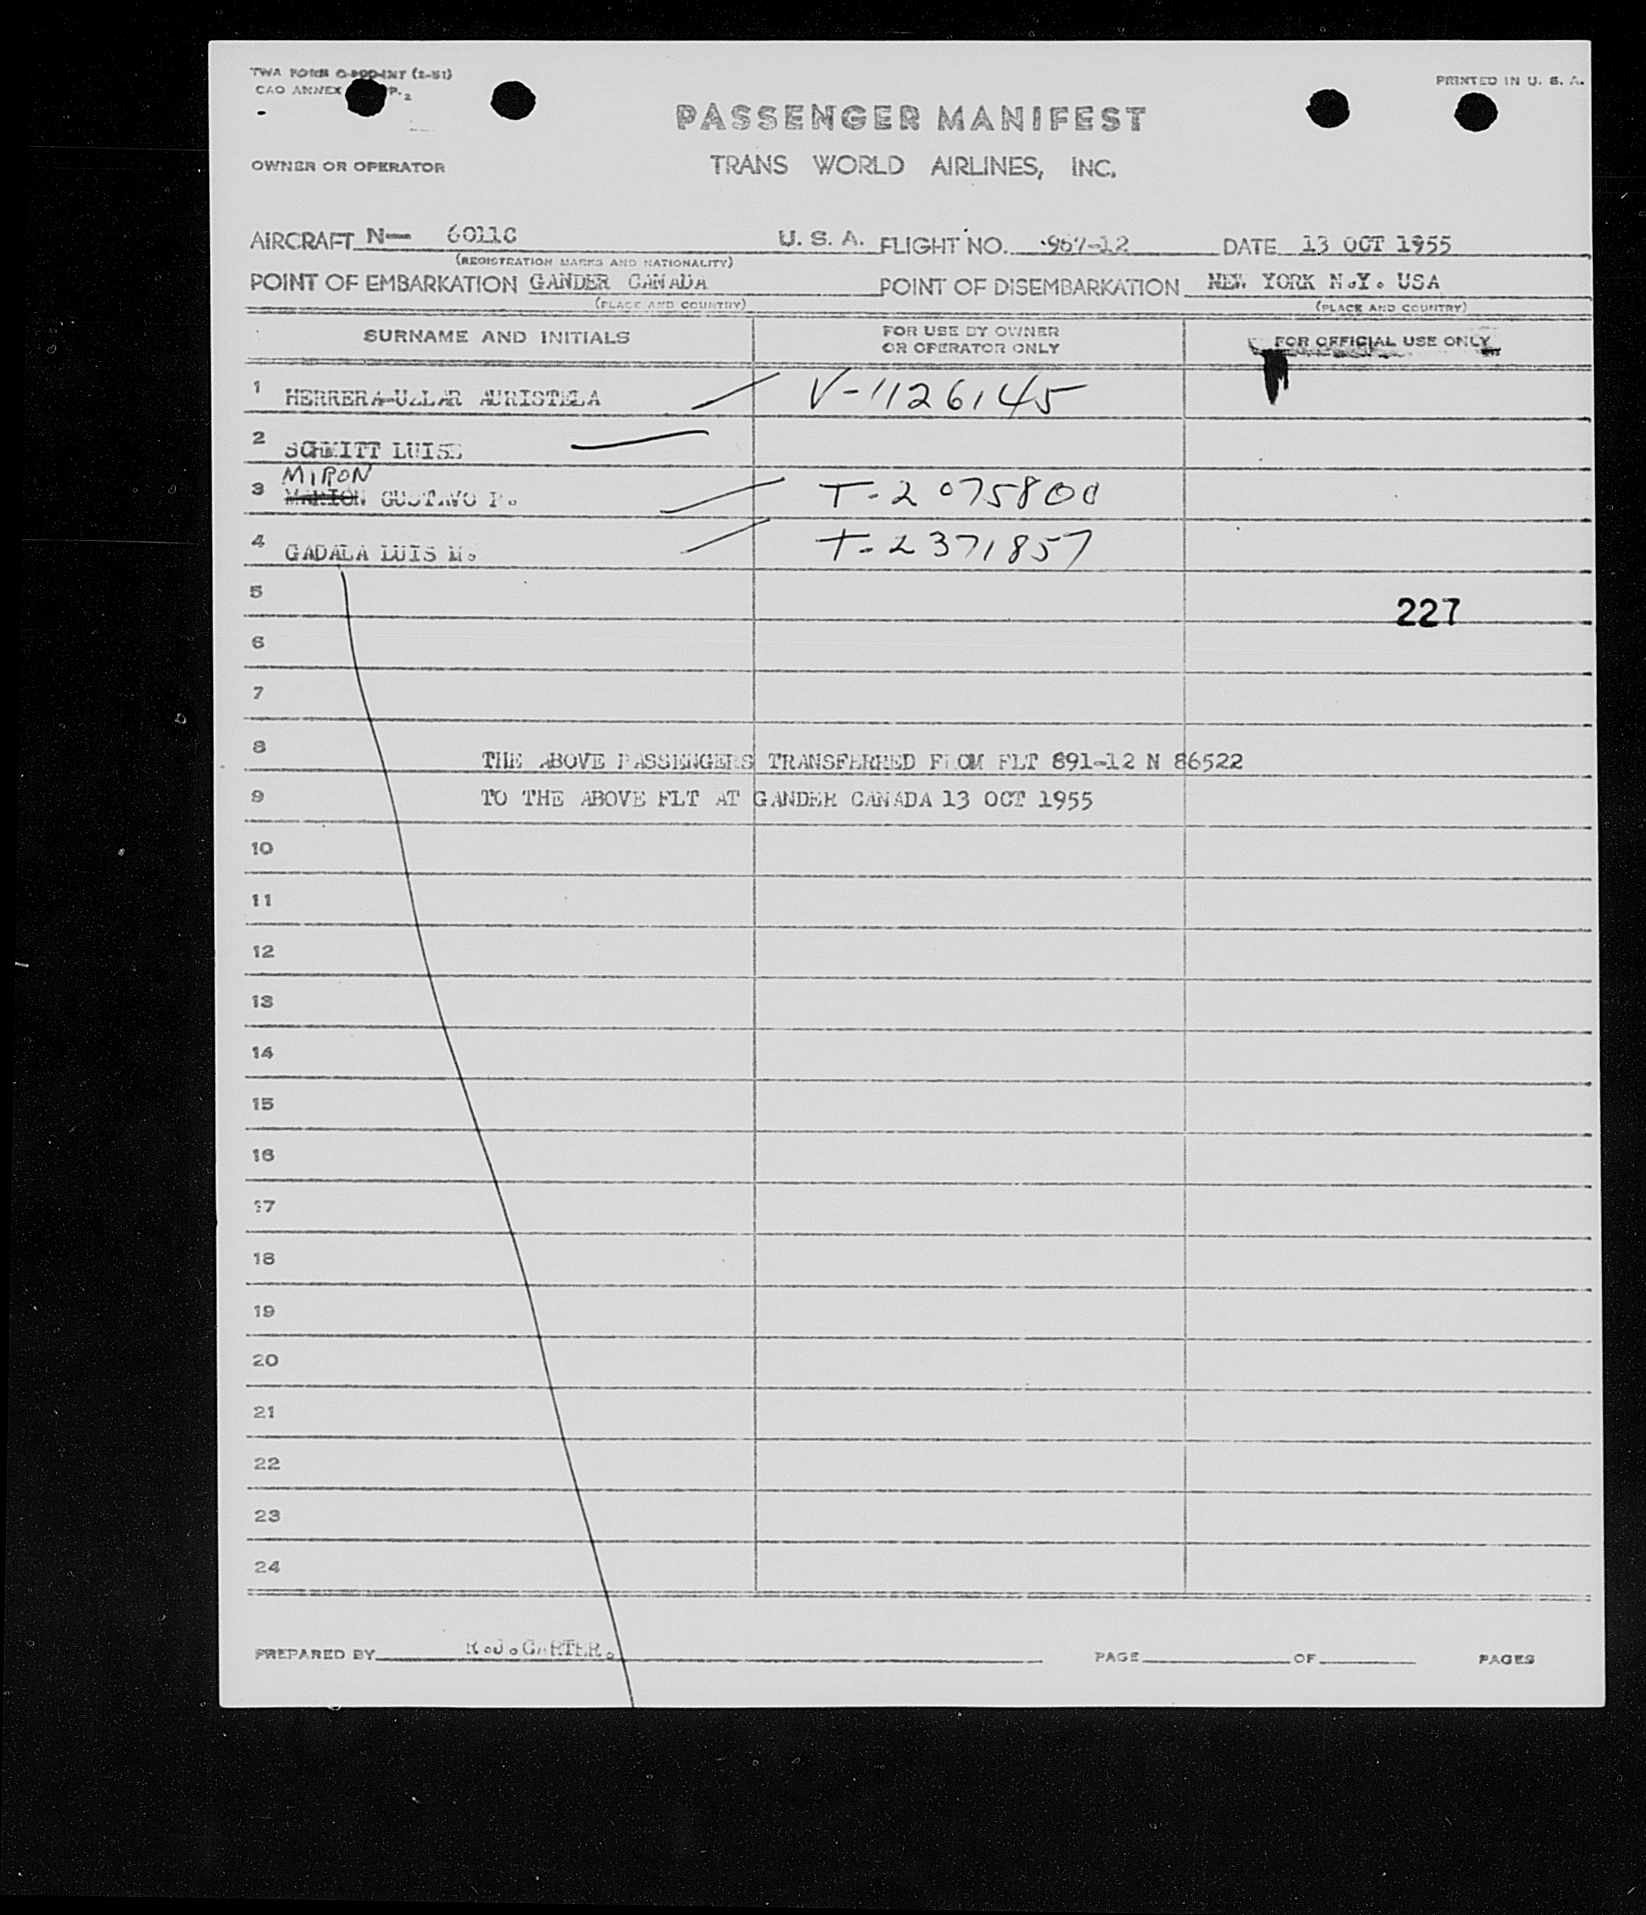 TWA FORM
CAO ANNEX
PRINTED IN U. S. A.
PASSENGER MANIFEST
OWNER OR OPERATOR
TRANS WORLD AIRLINES, INC.
AIRCRAFT N— 6011C U. S. A. FLIGHT NO. 967-12 DATE 13 OCT 1955
(REGISTRATION MARKS AND NATIONALITY)
POINT OF EMBARKATION GANDER CANADA POINT OF DISEMBARKATION NEW YORK N.Y. USA
(PLACE AND COUNTRY) (PLACE AND COUNTRY)
SURNAME AND INITIALS FOR USE BY OWNER OR OPERATOR ONLY FOR OFFICIAL USE ONLY
1 HERRERA-UZLAR AURISTELA V-1126145
2 SCHMITT LUISE
MIRON
3 MARION GUSTAVO P. T-2075800
4 GADALA LUIS M. T-2371857
5
227
6
7
8 THE ABOVE PASSENGERS TRANSFERRED FROM FLT 891-12 N 86522
9 TO THE ABOVE FLT AT GANDER CANADA 13 OCT 1955
10
11
12
13
14
15
16
17
18
19
20
21
22
23
24
PREPARED BY R.J.CARTER. PAGE OF PAGES